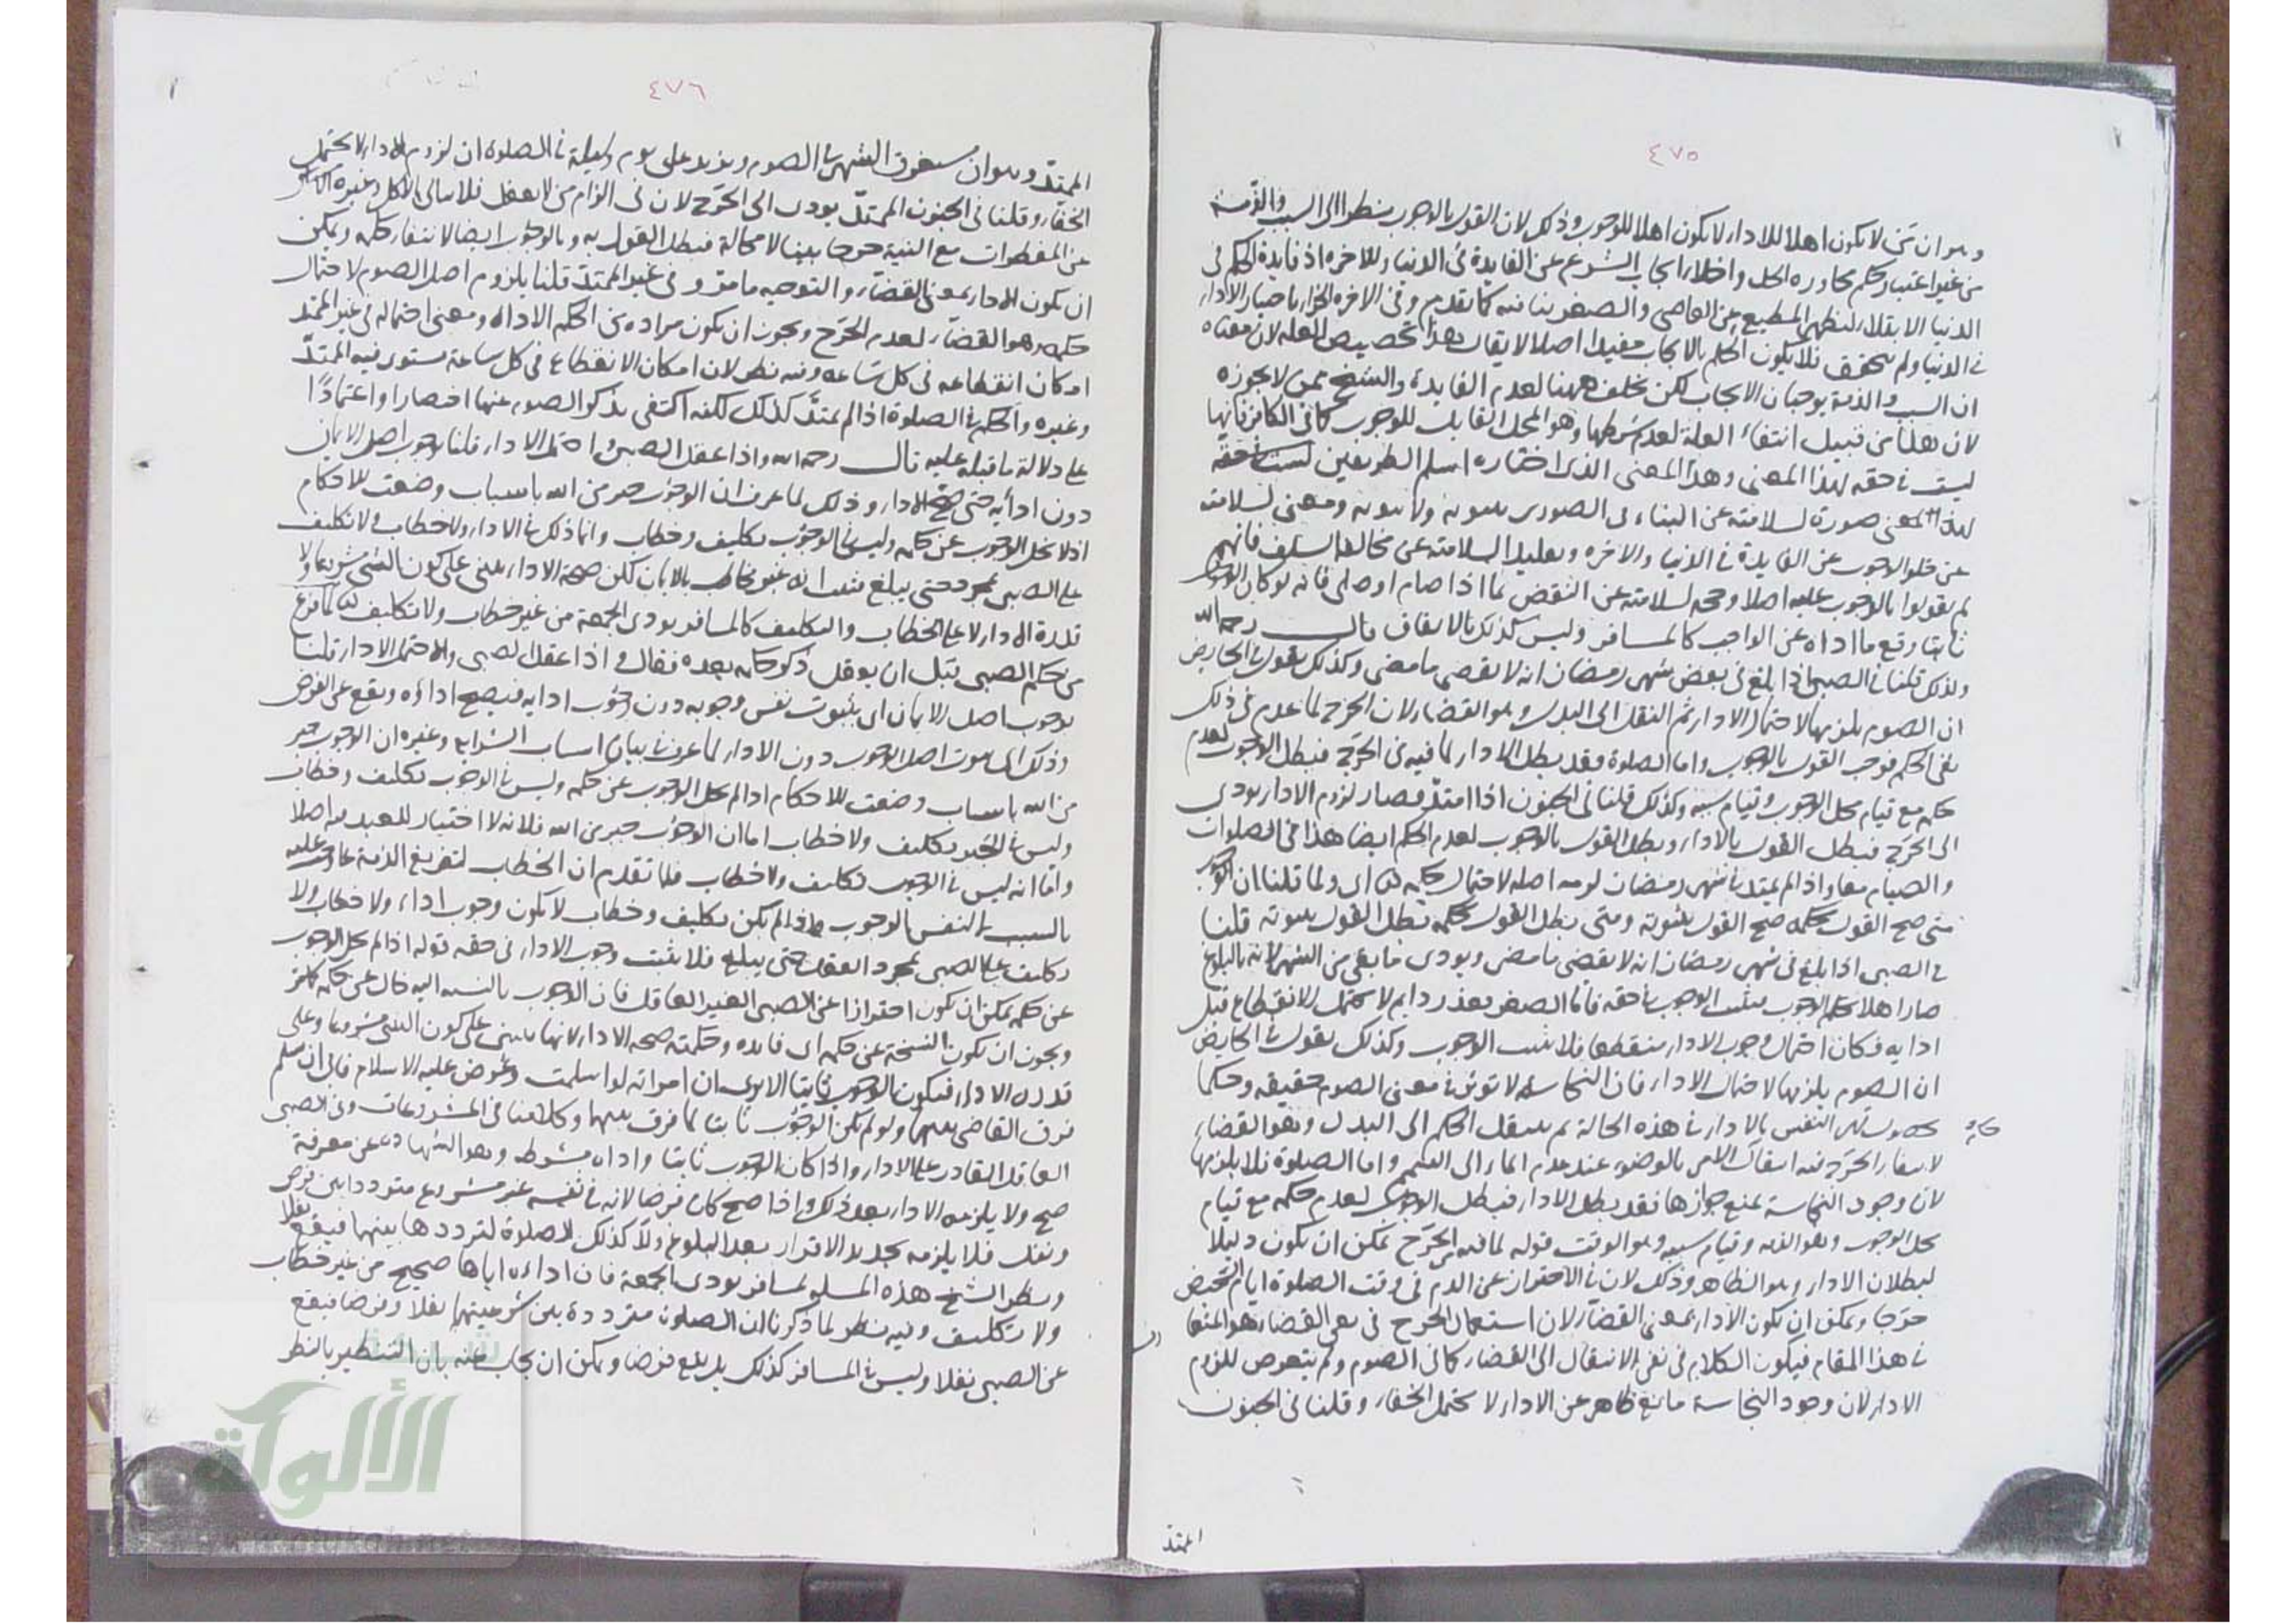 ٤٧٥
وهو ان من لا يكون اهلا للادا لا يكون اهلا للوجوب وذلك لان القول بالوجوب نظرا الى السبب والذمة
من غير اعتبار حكم مجاوزه الحل واخلاء ايجاب الشرع عن الفايدة في الدنيا وللاخره اذ فايدة الحكم في
الدنيا الابتلاء ليظهر المطيع عن العاصي والصغر ينافيه كما تقدم وفي الاخره الجزاء باختيار الادا
في الدنيا ولم يتحقق فلا يكون الحكم بالايجاب مفيدا اصلا لا يقال هذا تخصيص العله لان معناه
ان السبب والذمة يوجبان الايجاب لكن تخلف ههنا لعدم الفايدة والشيخ ممن لا يجوزه
لان هذا من قبيل انتفاء العلة لعدم شرطها وهو المحل القابل للوجوب كما في الكافر فانها
ليست في حقه لهذا المعنى وهذا المعنى الذي اختاره اسلم الطريقين
لهذا المعنى صورة لسلامته عن البناء في الصوري بثبوته ولا ثبوته ومعنى لسلامته
عن خلو الوجوب عن الفايدة في الدنيا والاخره وتقليدا لسلامته عن مخالفة السلف فانهم
لم يقولوا بالوجوب عليه اصلا وحجه لسلامته عن النقض بما اذا صام او صلى فانه لو كان الوجوب
ثابتا وقع ما اداه عن الواجب كالمسافر وليس كذلك بالاتفاق قال رحمه الله
ولذلك قلنا في الصبي اذا بلغ في بعض شهر رمضان انه لا يقضي ما مضى وكذلك نقول في الحايض
ان الصوم يلزمها لاحتمال الادا ثم النقل الى البدل وهو القضاء لان الحرج لما عدم في ذلك
بقي الحكم فوجب القول بالوجوب واما الصلوة فقد بطل الادا لما فيه من الحرج فبطل الوجوب لعدم
حكمه مع قيام محل الوجوب وقيام سببه وكذلك قلنا في الجنون اذا امتد فصار لزوم الادا يودي
الى الحرج فبطل القول بالادا وبطل القول بالوجوب لعدم الحكم ايضا هذا في الصلوات
والصيام معا واذا لم يمتد في شهر رمضان لزمه اصله لاحتمال حكمه اي ولما قلنا ان الوجوب
متى صح القول بحكمه صح القول بثبوته ومتى بطل القول بحكمه بطل القول بثبوته قلنا
في الصبي اذا بلغ في شهر رمضان انه لا يقضي ما مضى ويودي ما بقي من الشهر لانه بالبلوغ
صار اهلا لحكم الوجوب فثبت الوجوب في حقه فاما الصغر بعذر دايم لا يحتمل الانقطاع قبل
ادايه فكان احتمال وجوب الادا منقطعا فلا يثبت الوجوب وكذلك نقول في الحايض
ان الصوم يلزمها لاحتمال الادا فان النجاسة لا توثر في معنى الصوم حقيقه وحكما
قهر النفس بالادا في هذه الحالة ثم ينتقل الحكم الى البدل وهو القضاء
لانتفاء الحرج فيه انتقال الامر بالوضوء عند عدم الماء الى التيمم واما الصلوة فلا يلزمها
لان وجود النجاسة يمنع جوازها فقد بطل الادا فبطل الوجوب لعدم حكمه مع قيام
محل الوجوب وهو الذمه وقيام سببه وهو الوقت قوله لما فيه من الحرج يمكن ان يكون دليلا
لبطلان الادا وهو الظاهر وذلك لان في الاحتراز عن الدم في وقت الصلوة ايام الحيض
حرجا ويمكن ان يكون الادا بمعنى القضاء لان استعمال الحرج في نفي القضاء هو
في هذا المقام فيكون الكلام في نفي الانتقال الى القضاء كما في الصوم ولم يتعرض للزوم
الادا لان وجود النجاسة مانع ظاهر عن الادا لا يحتمل الخفاء وقلنا في الجنون
الممتد
٤٧٦
الممتد وهو ان يستغرق الشهر في الصوم ويزيد على يوم وليلة في الصلوة ان لزوم الادا لا يحتمل
الخفاء وقلنا في الجنون الممتد يودي الى الحرج لان في الزام من لا يعقل فلا يبالي بالاكل وغيره
من المفطرات مع النية حرجا بينا لا محالة فبطل القول به وبالوجوب ايضا لانتفاء حكمه ويمكن
ان يكون الادا بمعنى القضاء والتوجيه ما مر وفي غير الممتد قلنا يلزوم اصل الصوم لاحتمال
حكمه وهو القضاء لعدم الحرج ويجوز ان يكون مراده من الحكم الاداء ومعنى احتماله في غير الممتد
امكان انقطاعه في كل ساعه وفيه نظر لان امكان الانقطاع في كل ساعة مستوى فيه الممتد
وغيره والحكم في الصلوة اذا لم يمتد كذلك لكنه اكتفى بذكر الصوم عنها اختصارا واعتمادا
على دلالة ما قبله عليه قال رحمه الله واذا عقل الصبي واحتمل الادا قلنا بوجوب اصل الايمان
دون ادايه حتى صح الادا وذلك لما عرف ان الوجوب جبر من الله باسباب وضعت للاحكام
اذا لم يخل الوجوب عن حكمه وليس في الوجوب تكليف وخطاب وانما ذلك في الادا ولا خطاب ولا تكليف
على الصبي بمجرد حتى يبلغ فثبت انه غير مخاطب بالايمان لكن صحة الادا يبتنى على كون الشي مشروعا ولا
قدرة الادا لا على الخطاب والتكليف كالمسافر يودي الجمعة من غير خطاب ولا تكليف لما فرغ
من حكم الصبي قبل ان يعقل ذكر حكمه بعده فقال واذا عقل الصبي والاحتمل الادا قلنا
بوجوب اصل الايمان اي بثبوت نفس وجوبه دون وجوب ادايه فيصح اداؤه ويقع عن الفرض
وذلك اي ثبوت اصل الوجوب دون الادا لما عرف في بيان اسباب الشرايع وغيره ان الوجوب جبر
من الله باسباب وضعت للاحكام اذا لم يخل الوجوب عن حكمه وليس في الوجوب تكليف وخطاب
وليس في الجبر تكليف ولا خطاب اما ان الوجوب جبر من الله فلانه لا اختيار للعبد فيه اصلا
واما انه ليس في الوجوب تكليف ولا خطاب فلما تقدم ان الخطاب لتفريغ الذمة عما وجب عليه
بالسبب لنفس الوجوب واذا لم يكن تكليف وخطاب لا يكون وجوب اداء ولا خطاب ولا
تكليف على الصبي بمجرد العقل حتى يبلغ فلا يثبت وجوب الادا في حقه قوله اذا لم يخل الوجوب
عن حكمه يمكن ان يكون احترازا عن الصبي الغير العاقل فان الوجوب بالنسبه اليه خال عن حكمه كما مر
ويجوز ان يكون النسخة عن حكمه اي فايده وحكمته صحه الادا لانها يبتنى على كون الشي مشروعا وعلى
قدرة الادا فيكون الوجوب ثابتا الا يرى ان امراته لو اسلمت وعرض عليه الاسلام فابى ان يسلم
فرق القاضي بينهما ولو لم يكن الوجوب ثابتا لما فرق بينهما وكلامنا في المشروعات وفي الصبي
العاقل القادر على الادا واذا كان الوجوب ثابتا واداه بشرطه وهو الشهادة عن معرفة
صح ولا يلزمه الادا بعد ذلك واذا صح كان فرضا لانه في نفسه غير مشروع متردد بين فرض
ونفل فلا يلزمه تجديد الاقرار بعد البلوغ ولا كذلك الصلوة لترددها بينهما فيقع نفلا
ونظر الشيخ هذه المسلة بمسافر يودي الجمعة فان اداءه اياها صحيح من غير خطاب
ولا تكليف وفيه نظر لما ذكرنا ان الصلوة مترددة بين شرعيتها نفلا وفرضا فيقع
عن الصبي نفلا وليس في المسافر كذلك بل يقع فرضا ويمكن ان يجاب عنه بان التنظير بالنظر
الألوكة